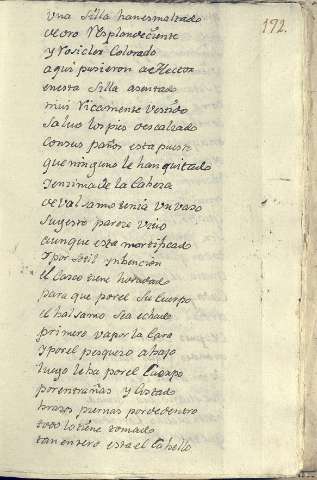 192.
una silla han esmaltado
de oro Resplandeciente
y Rosicler Colorado
aqui pusieron a Hector
en esta silla asentado
mui Ricamente vestido
salvo los pies descalzado
Con sus paños esta puesto
que ninguno le han quitado
y enzima de la Cabeza
de valsamo tenia un vaso
su gesto pareze vivo
aunque esta mortificado
y por sotil ynbencion
el Casco tiene horadado
para que por el su Cuerpo
el balsamo sea echado
primero va por la Cara
y por el pesquezo abajo
luego le ba por el Cuerpo
por entrañas y Costado
brazos piernas por de dentro
todo lo tiene tomado
tan entero esta el Cabello